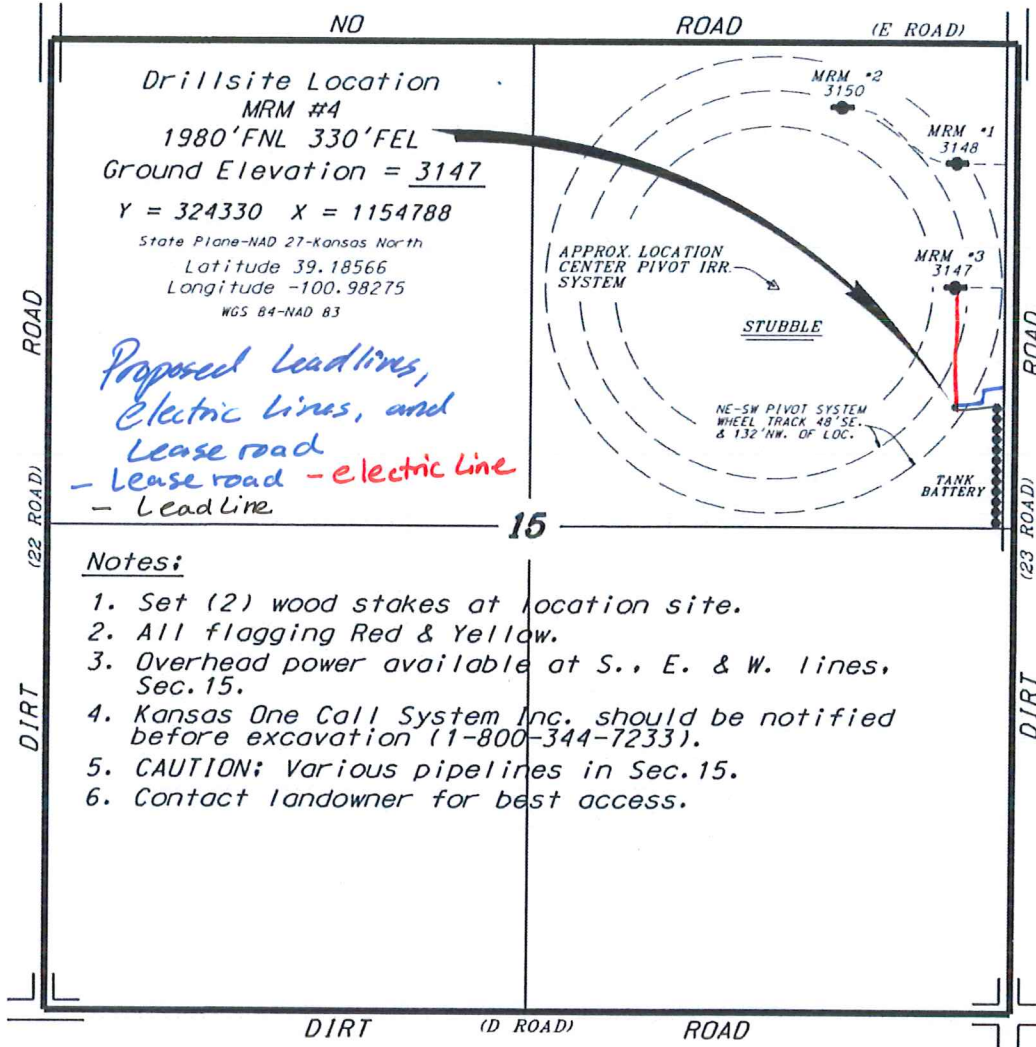 NO ROAD (E ROAD)
Drillsite Location
MRM #4
1980'FNL 330'FEL
Ground Elevation = 3147
Y = 324330 X = 1154788
State Plane-NAD 27-Kansas North
Latitude 39.18566
Longitude -100.98275
WGS 84-NAD 83
Proposed Leadlines,
electric Lines, and
Lease road
- Lease road - electric Line
- Lead Line
MRM #2
3150
MRM #1
3148
MRM #3
3147
APPROX. LOCATION
CENTER PIVOT IRR.
SYSTEM
STUBBLE
NE-SW PIVOT SYSTEM
WHEEL TRACK 48'SE.
& 132'NW. OF LOC.
TANK
BATTERY
15
DIRT (22 ROAD) ROAD
DIRT (23 ROAD) ROAD
Notes:
1. Set (2) wood stakes at location site.
2. All flagging Red & Yellow.
3. Overhead power available at S., E. & W. lines,
Sec. 15.
4. Kansas One Call System Inc. should be notified
before excavation (1-800-344-7233).
5. CAUTION: Various pipelines in Sec. 15.
6. Contact landowner for best access.
DIRT (D ROAD) ROAD